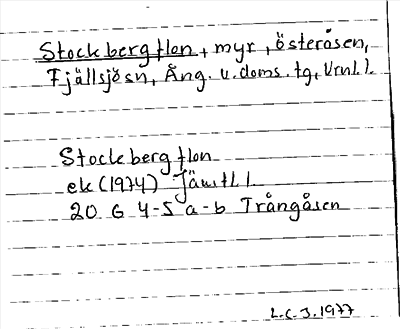 Stockbergflon, myr, Österåsen,
Fjällsjö sn, Ång. v. doms. tg, Vrnl. l.
Stockbergflon
ek (1974) Jämtl. l
20 G 4-5 a-b Trångåsen
L.C.J. 1977